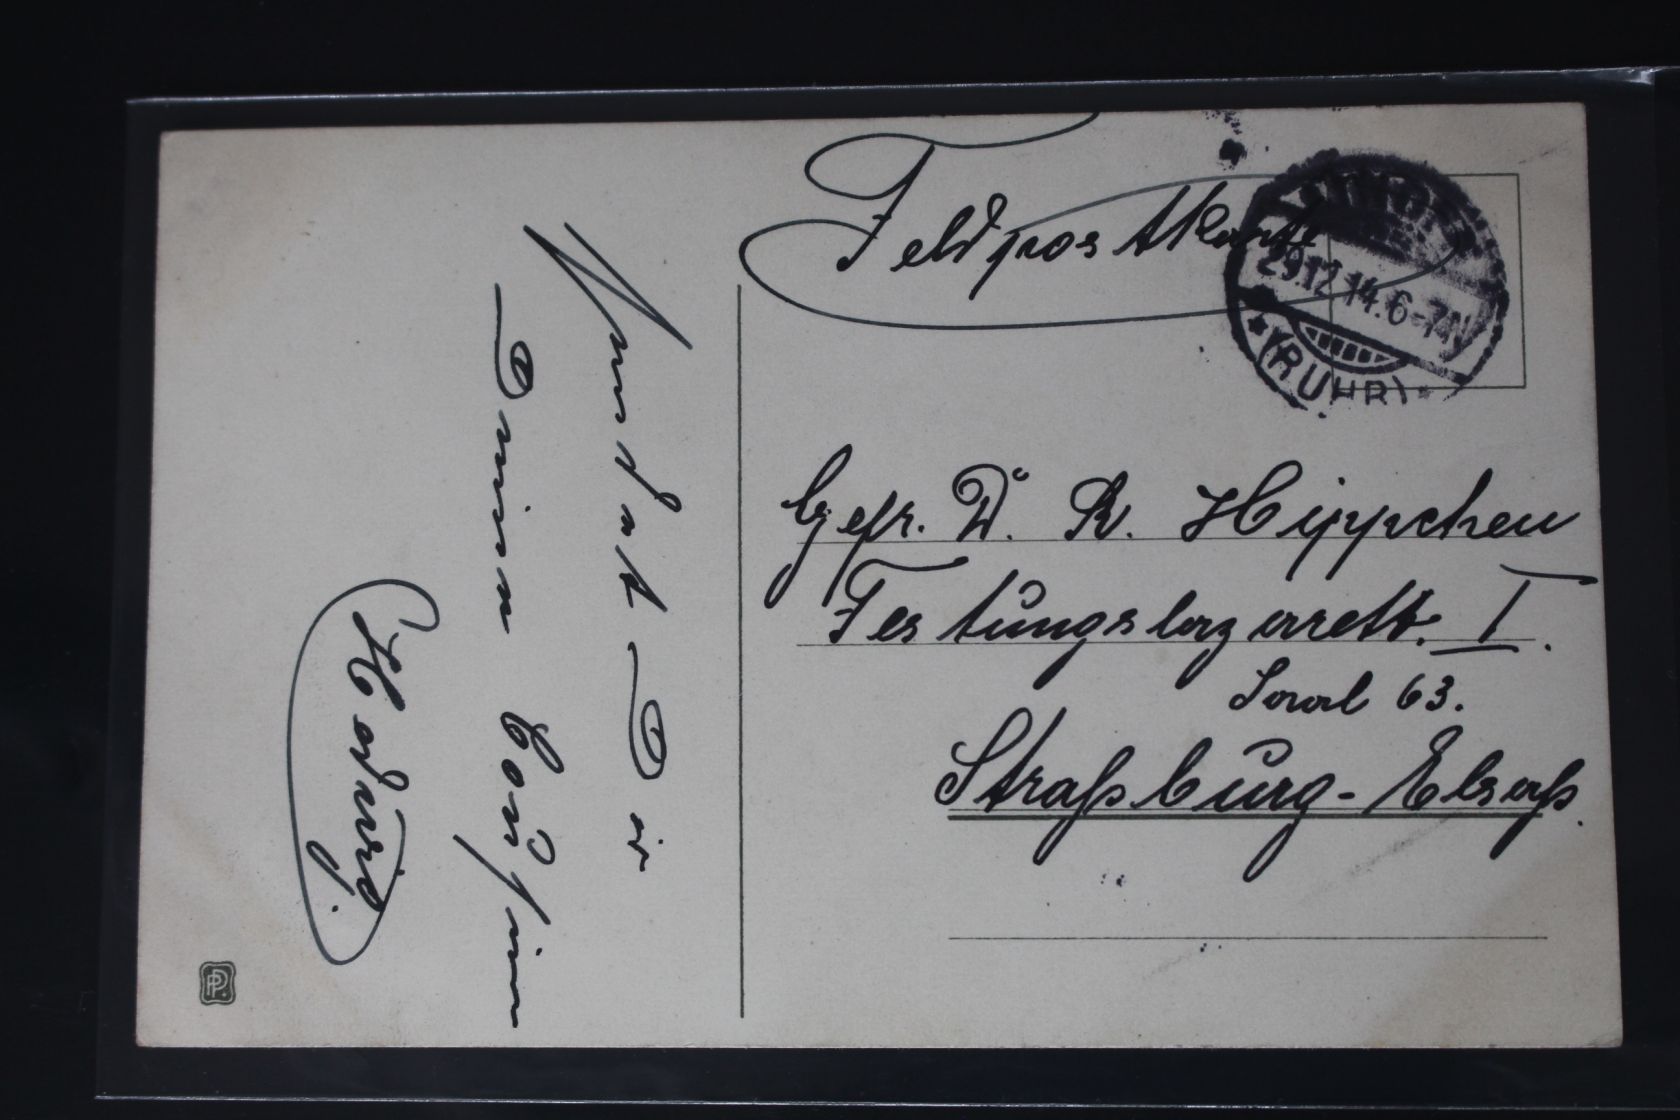 Feldpostkarte
29.12.14.6-7N
* (RUHR) *
Gefr. D. R. Hippchen
Festungslazarett. I.
Saal 63.
Straßburg-Elsaß.
sendet Dir
Deine
Hedwig.
PP